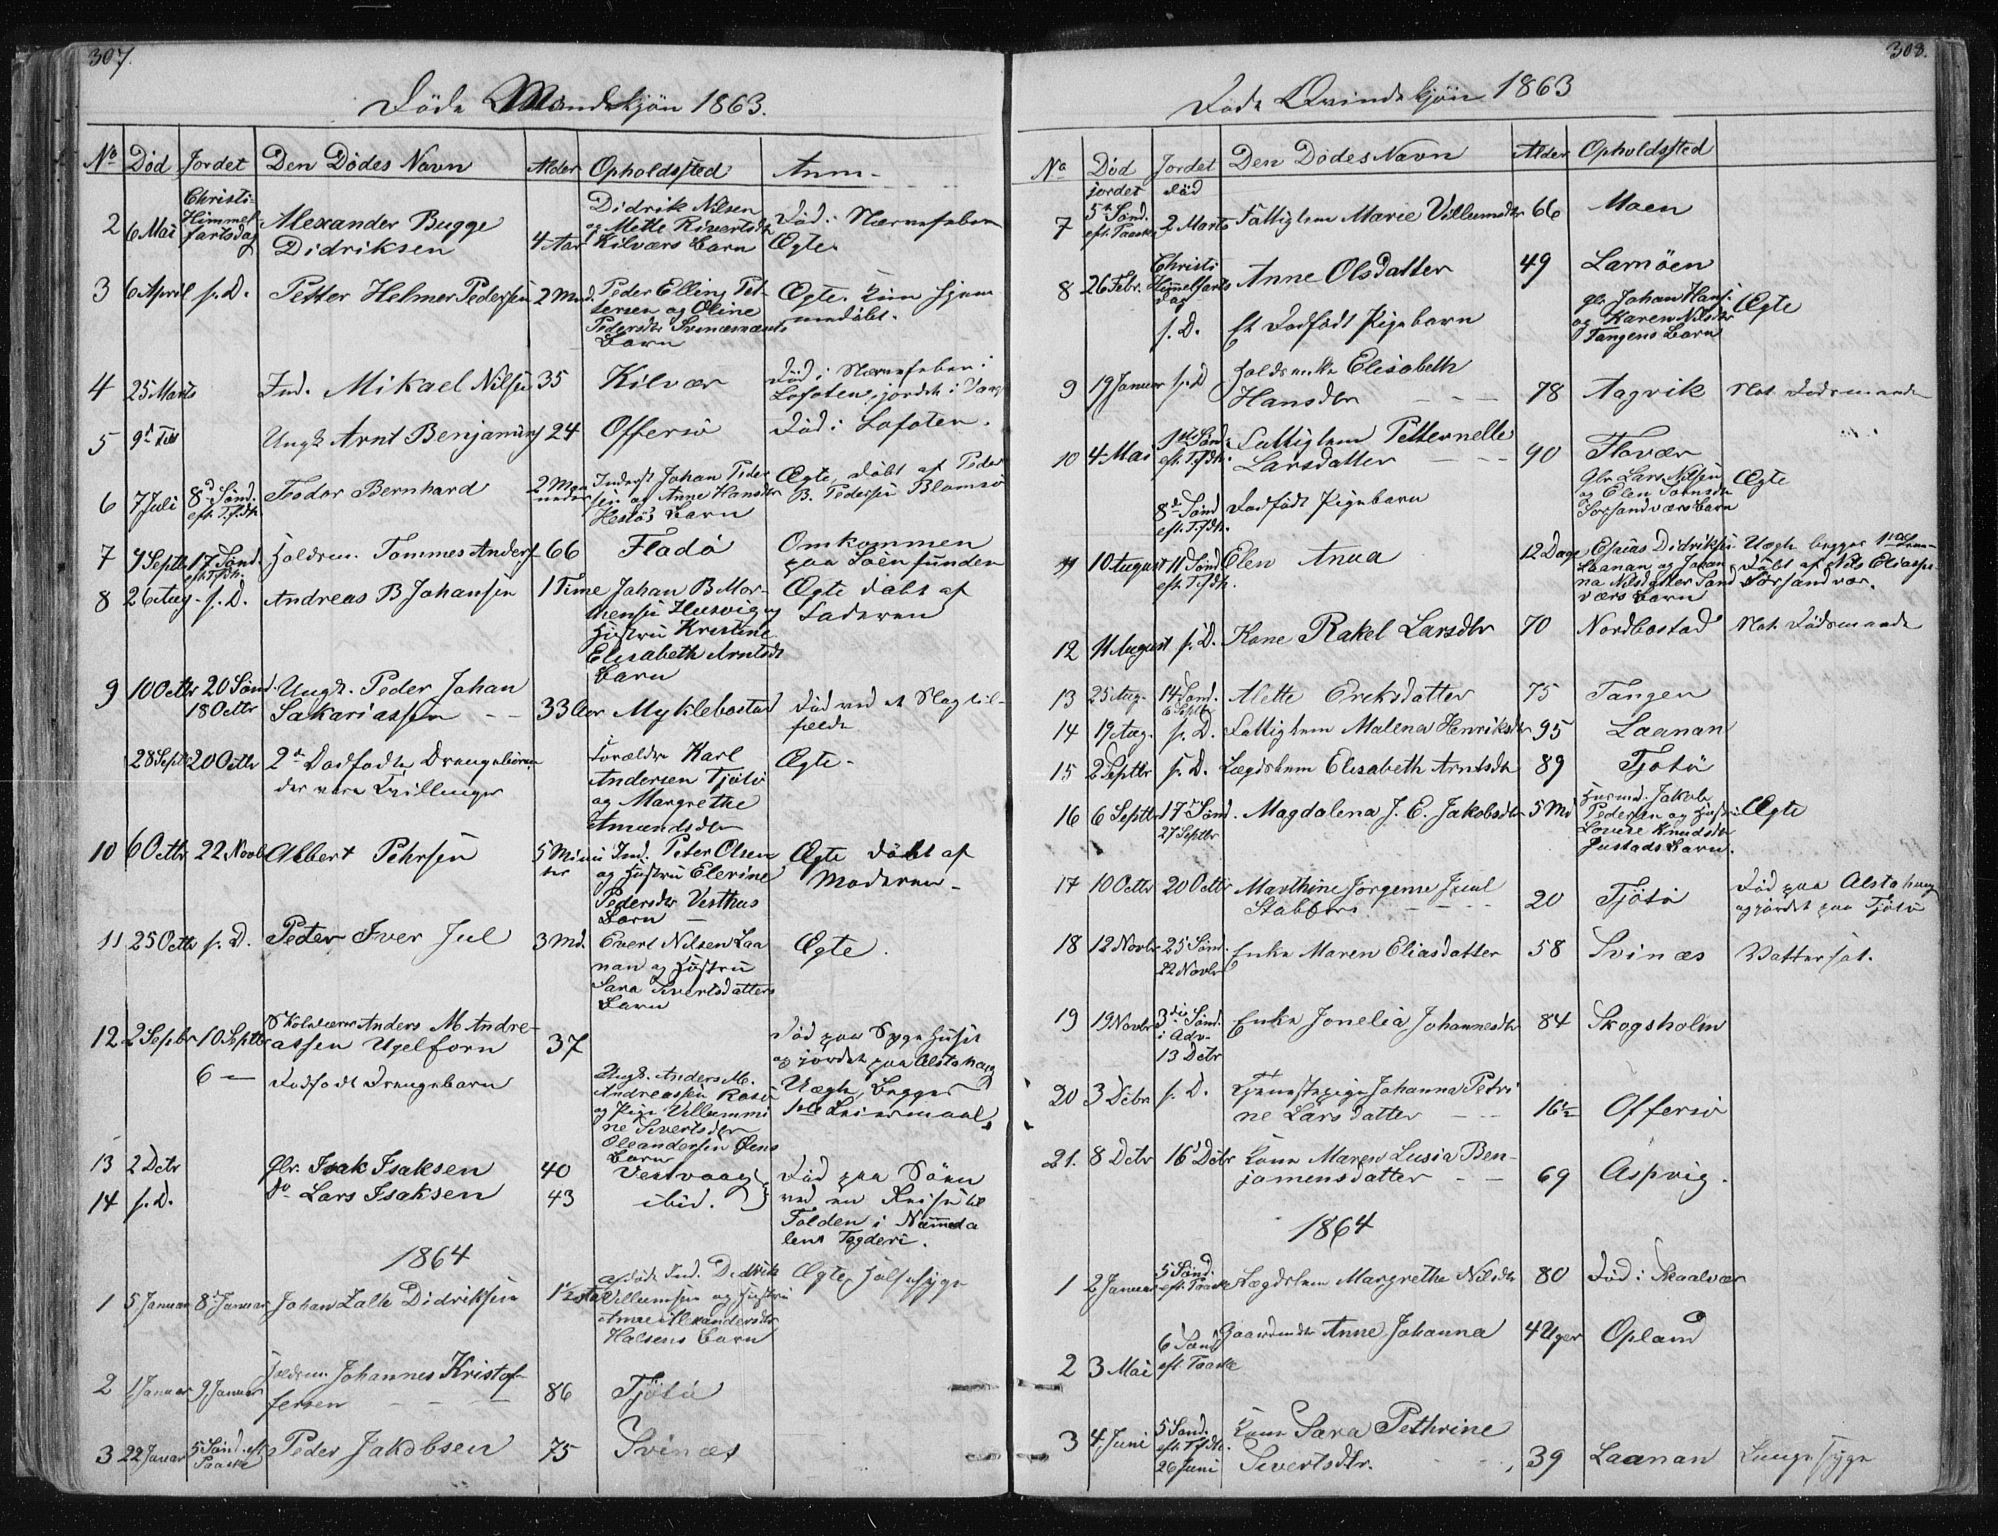 307.
Döde Mandskjön 1863.
No Död Jordet Den Dödes Navn Alder Opholdssted Anm-
2 6 Mai Christi Himmelfartsdag Alexander Bugge Didriksen 4 Aar Didrik Nilsen og Mette Sivertsdtr Kilværs Barn Död i Nervefeber Ægte
3 6 April s. D. Petter Helmer Pedersen 2 Mnd. Peder Elling Petersen og Oline Pedersdtr Svinæsnæs Barn Ægte. Kun hjemmedöbt.
4 25 Marts Ind. Mikael Nilsen 35 Kilvær Död i Nervefeber i Lofoten, jordet i
5 9d Ungk Arnt Benjamins 24 Offersö Död i Lofoten.
6 7 Juli 8d Sönd. eft. Tfdh. Teodor Bernhard 2 Maaneder Inderst Johan Pedersen og Anne Hansdtr Hestös Barn Ægte, döbt af Peder B. Pedersen Blomsö
7 4 Septbr 17 Sönd eft Tfdh. Holdsm. Tommes Anders 66 Fladö Omkommen paa Söen funden
8 26 Aug. s. D. Andreas B Johansen 1 Time Johan B Mortensen Husvig og Hustru Kristine Elisabeth Arntsdtr Barn Ægte döbt af Faderen
9 10 Octbr 20 Sönd. 18 Octbr Ungk. Peder Johan Sakariassen 33 Aar Myklebostad Död ved et Slagtilfælde
28 Septbr 20 Octbr 2de Dödfödte Drengebörn der vare Tvillinger Forældre Karl Andersen Tjötö og Margrethe Amundsdtr Ægte-
10 6 Octbr 22 Novbr Albert Petersen 5 Minuter Ind. Peter Olsen og Hustru Elerine Pedersdtr Vesthus Barn Ægte döbt af Moderen-
11 25 Octb s. D. Peter Iver Jul 3 Md. Evert Nilsen Laanan og Hustru Sara Sivertsdatters Barn Ægte.
12 2 Sepbr 10 Septbr Skolelærer Anders M Andreassen Ugelforn 37 Död paa Sygehuset og jordet paa Alstahoug
6 — Dödfödt Drengebarn Ungk. Anders M. Andreassen Rosö og Pige Villummine Sivertsdtr Oleandersen Öens Barn Uægte, Begges 1ste Leiermaal.
13 2 Dcbr Gbr. Isak Isaksen 40 Vestvaag Död paa Söen
14 s. D. Do Lars Isaksen 43 ibid. ved en Reise til Folden i Namdalens Fogderi.
1864
1 5 Januar 8 Januar Johan Zalke Didriksen 1 1/2 afdöde Ind. Didrik Villumsen og Hustru Anne Alexandersdtr Halsens Barn Ægte, Halssyge
2 1 Januar 9 Januar Holdsm. Johannes Kristoffersen 86 Tjötö
3 22 Januar 5 Sönd. eft Paaske Peder Jakobsen 75 Svinæs
308.
Döde Qvindekjön 1863
No Död Jordet Den Dödes Navn Alder Opholdssted
jordet död
7 5te Sönd. eft. Paaske 2 Marts Fattiglem Marie Villumsdtr 66 Moen
8 26 Febr. Christi Himmelfartsdag Anne Olsdatter 49 Lamöen
s. D. Et Dödfödt Pigebarn gbr. Johan Hans. og Karen Nilsdtr Tangens Barn Ægte
9 19 Januar s. D Holdsenke Elisabeth Hansdtr 78 Aagvik Not. Dödsmaade
10 4 Mai 1ste Sönd eft. Tfdh. Fattiglem Petternelle Larsdatter 90 Flovær
8de Sönd eft. Tfdh. Dödfödt Pigebarn Gbr Lars Nilsen og Elen Tomsdtr Sörsandværs Barn Ægte
11 10 August 11 Sönd eft. Tfdh. Elen Anna 12 Dage Esaias Didriksen Laanan og Johanna Nilsdatter Sandværs Barn Uægte begges 1ste Leierm. Döbt af Nils Eliassen Sörsandvær.
12 11 August s. D. Kone Rakel Larsdtr 70 Nordbostad Not. Dödsmaade
13 25 Aug. 14 Sönd. 6 Septbr Alette Eriksdatter 75 Tangen
14 19 Aug. s. D. Fattiglem Malena Henriksdtr 95 Laanan
15 2 Septbr s. D. Lægdslem Elisabeth Arntsdtr 89 Tjötö
16 6 Septbr 17de Sönd. 27 Septbr Magdalena J. E. Jakobsdtr 5 Md Husmd. Jakob Pedersen og Hustru Lovise Knudsdtr Justads Barn. Ægte
17 10 Octbr 20 Octbr Marthine Jörgine Juul Stabfors 20 Tjötö Död paa Alstahaug og jordet paa Tjötö
18 12 Novbr 25 Sönd. 22 Novbr Enke Maren Eliasdatter 58 Svinæs Vattersot.
19 19 Novbr 3die Sönd. i Adv. 13 Dcbr Enke Jonelia Johannesdtr 84 Skogsholm
20 3 Dcbr s. D. Tjenestepige Johanna Petrine Larsdatter 16 Offersö
21. 8 Dcbr 16 Dcbr Kone Maren Lusia Benjamensdatter 69 Aspvig.
1864
1 2 Januar 5 Sönd. eft. Paaske Lægdslem Margrethe Nilsdtr 80 Död i Skaalvær
2 3 Mai 6 Sönd eft. Paaske Gaardmdtr Anne Johanna 4 Uger Opland
3 4 Juni 5 Sönd. eft. Tfdh. 26 Juni Kone Sara Pethrine Sivertsdtr. 39 Laanan Lungesyge